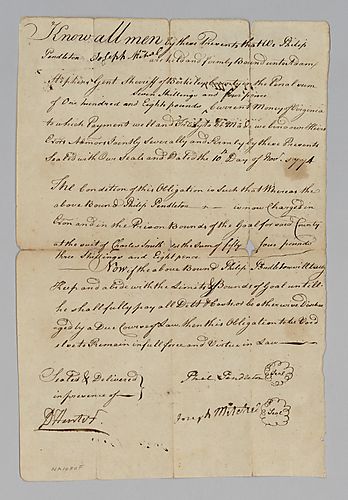 Know all men by these Presents that We Philip
Pendleton & Joseph Mitchel are held and firmly Bound unto Adam
Stephens Gent Sheriff of Berkeley County in the Penal sum
Seven Shillings and four pence
of One hundred and Eight pounds Current Money of Virginia
to which Payment well and Truly to be Made we bind our selves
Exors Admors Jointly Severally and firmly by these Presents
Sealed with Our Seals and Dated the 10 Day of Novr. 1774
The Condition of this Obligation is Such that Whereas the
above Bound Philip Pendleton is now Charged in
Exon and in the Prison Bounds of the Goal for said County
at the suit of Charles Smith for the Sum of fifty four pounds
three Shillings and Eight pence
Now if the above Bound Philip Pendleton will
Keep and abide with the Limits & Bounds of Goal untill
he shall fully pay all Debt & Costs or be otherwise Discharged
aged by a Due Course of Law then this Obligation to be Void
else to Remain in full force and Virtue in Law
Sealed & Delivered
in presence of
Phil Pendleton Seal
Joseph Mitchel Seal